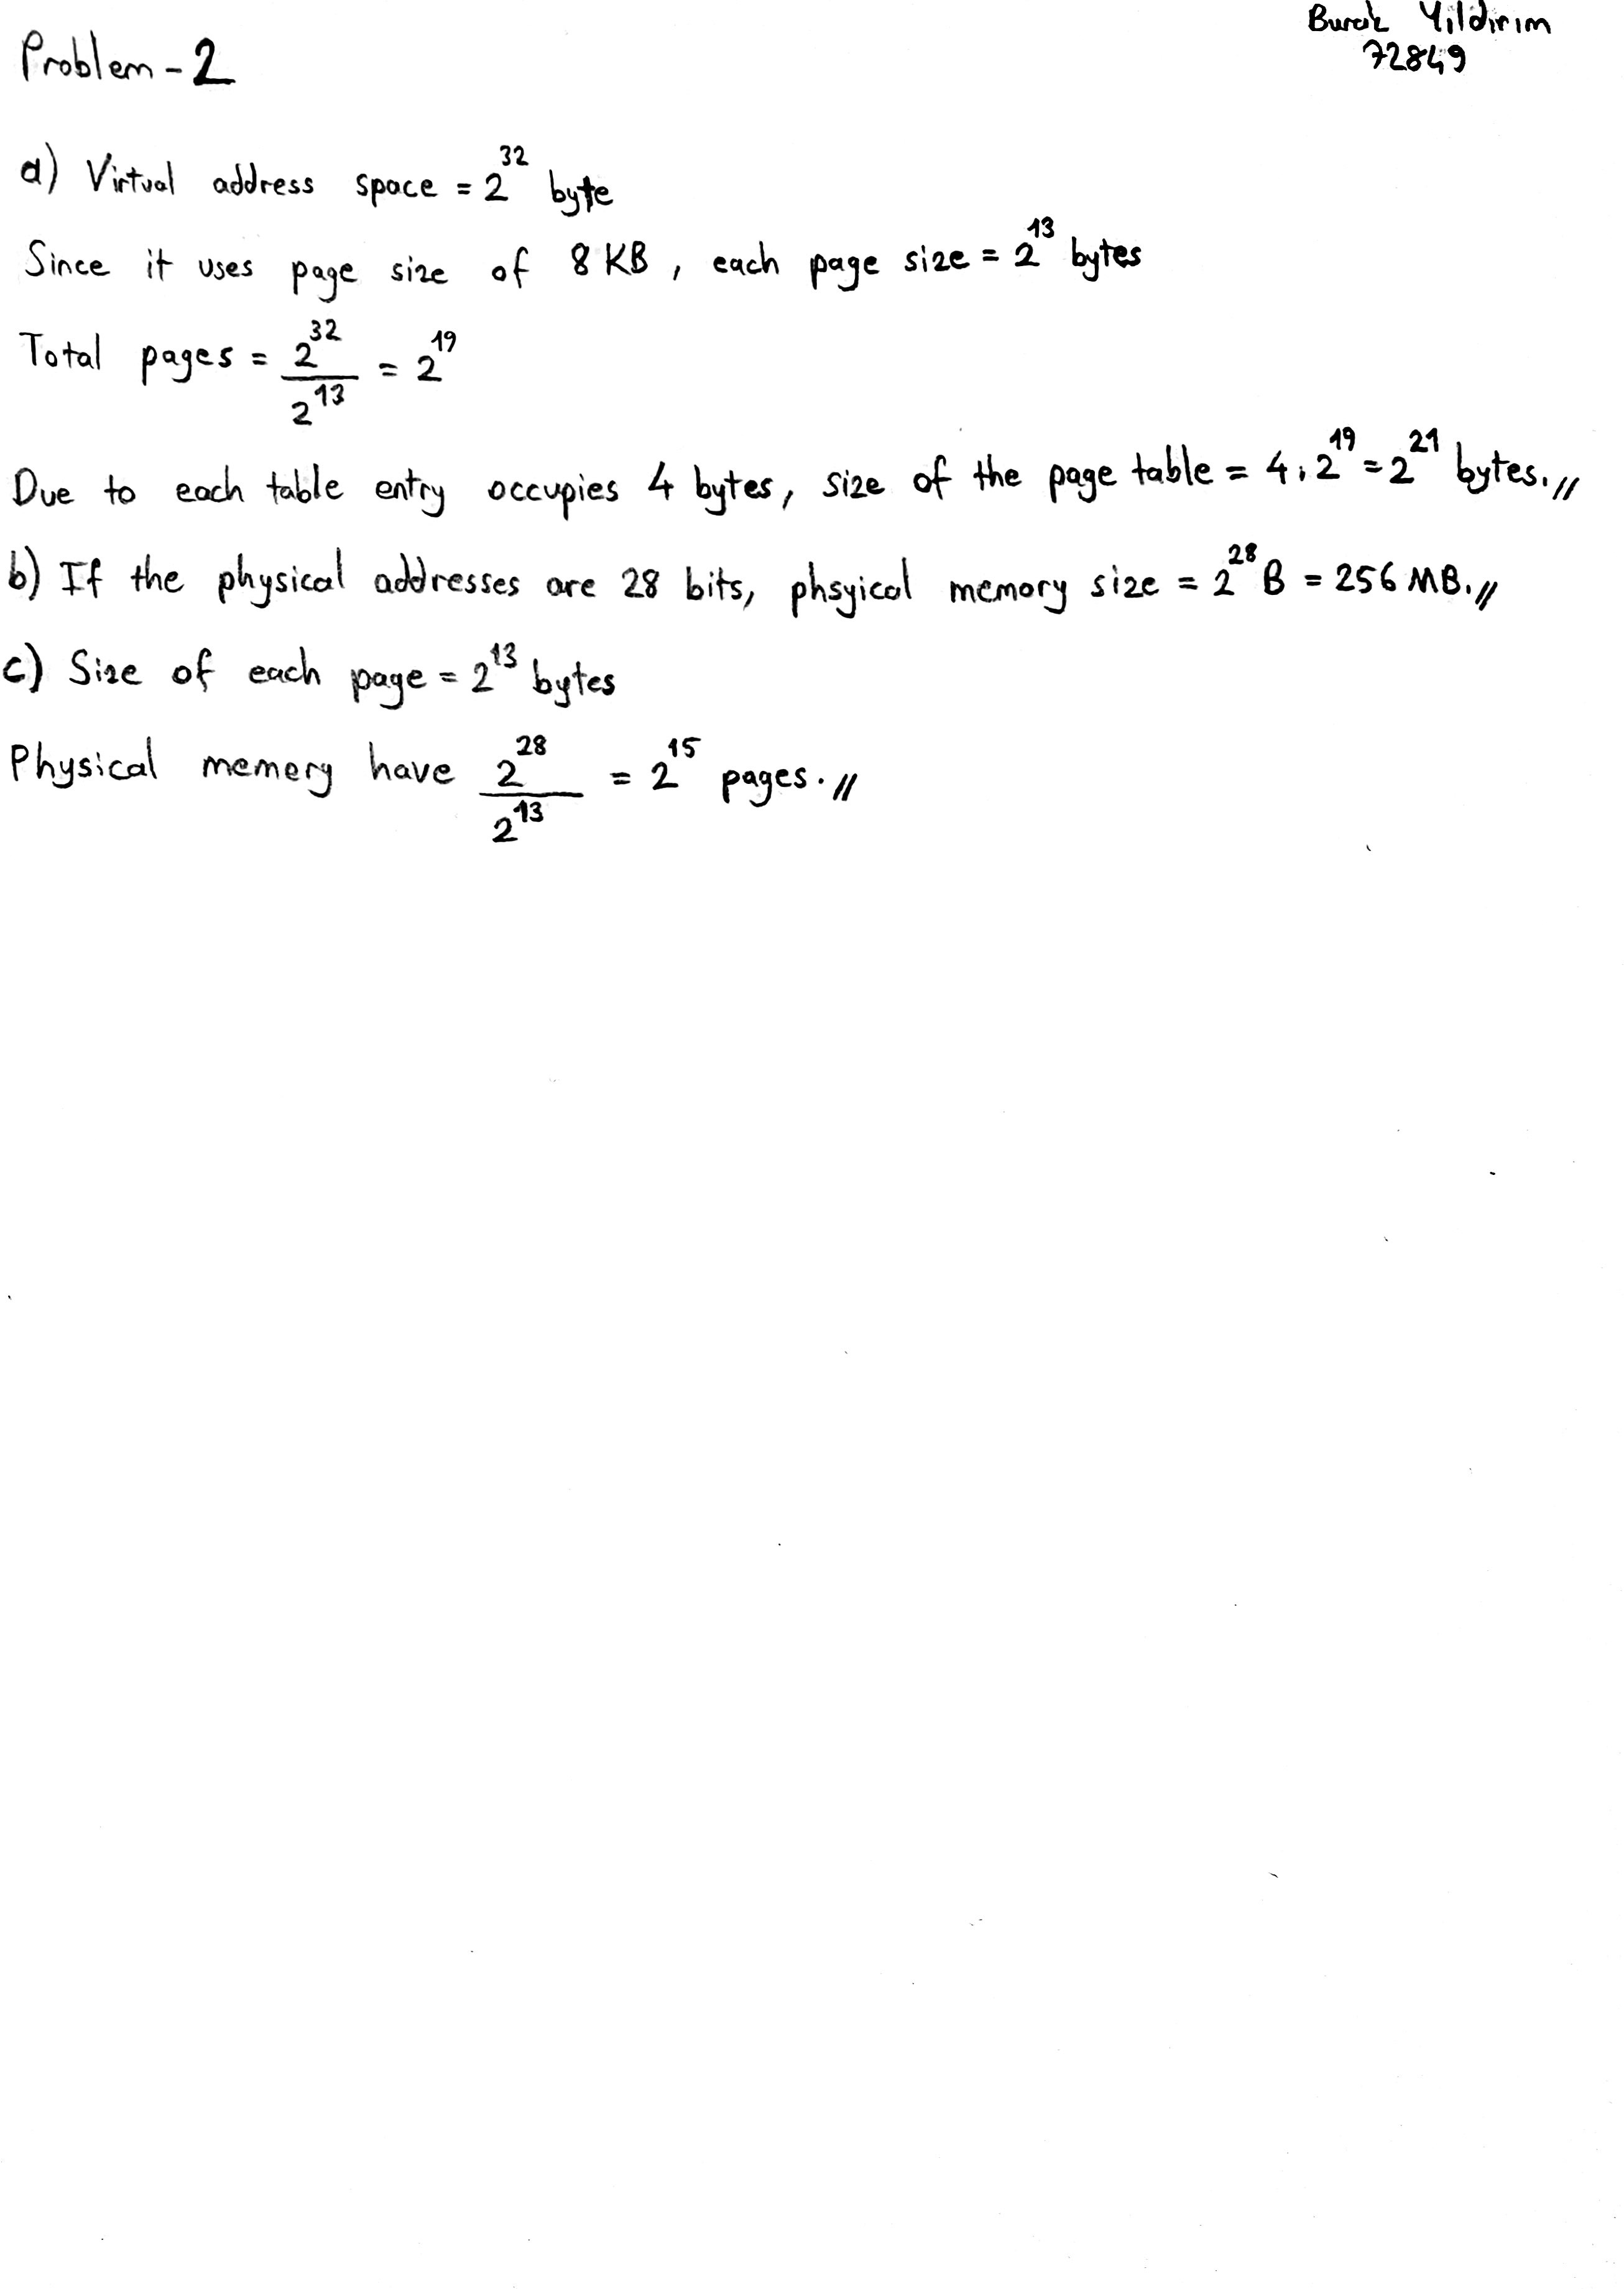 Burak Yıldırım
72849
Problem-2
a) Virtual address space = 2^32 byte
Since it uses page size of 8 KB, each page size = 2^13 bytes
Total pages = 2^32 / 2^13 = 2^19
Due to each table entry occupies 4 bytes, size of the page table = 4.2^19 = 2^21 bytes.//
b) If the physical addresses are 28 bits, phsyical memory size = 2^28 B = 256 MB.//
c) Size of each page = 2^13 bytes
Physical memery have 2^28 / 2^13 = 2^15 pages.//